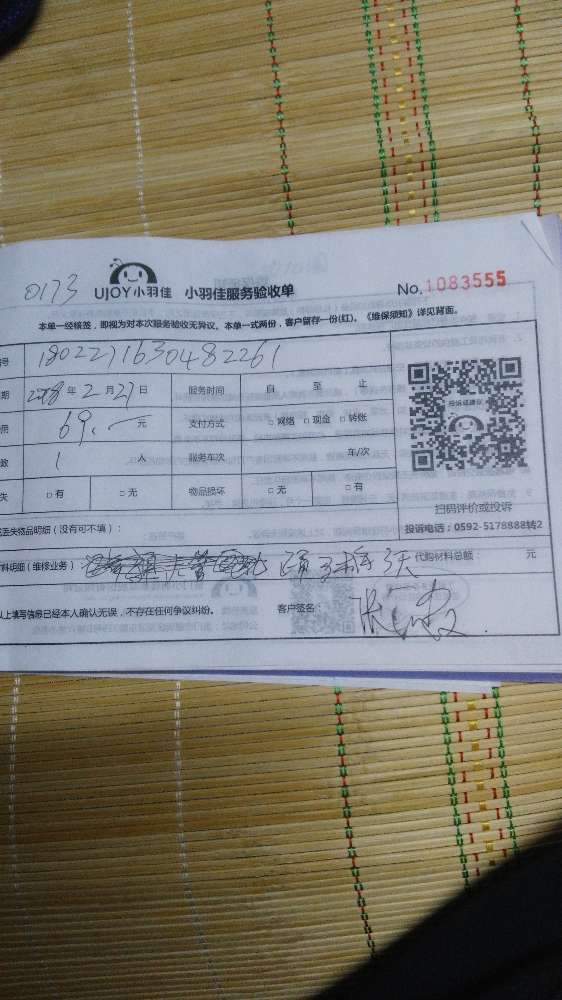 0173 UJOY小羽佳 小羽佳服务验收单 No.1083555
本单一经核签，即视为对本次服务验收无异议。本单一式两份，客户留存一份(红)。《维保须知》详见背面。
号 1802271630482261
期 2018 年 2 月 27 日 服务时间 自 至 止
69.— 元 支付方式 □ 网络 □ 现金 □ 转账
数 1 人 服务车次 车/次
失 □ 有 □ 无 物品损坏 □ 无 □ 有
投诉或建议
扫码评价或投诉
投诉电话：0592-5178888转2
丢失物品明细（没有可不填）：
料明细（维修业务） 代购材料总额： 元
以上填写信息已经本人确认无误，不存在任何争议纠纷。 客户签名：